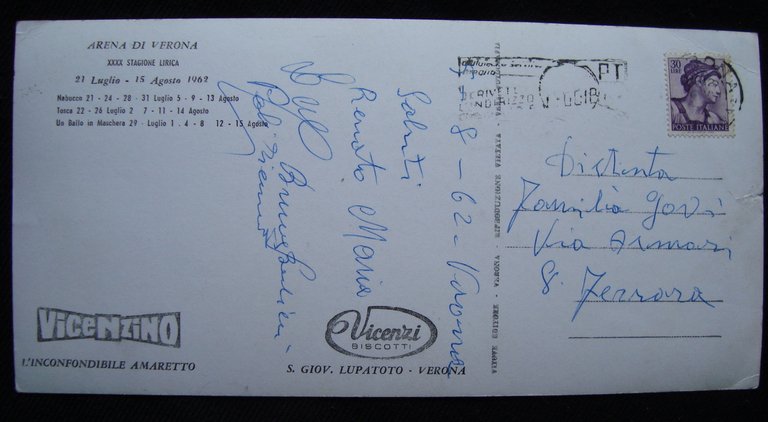 ARENA DI VERONA
XXXX STAGIONE LIRICA
21 Luglio - 15 Agosto 1962
Nabucco 21 - 24 - 28 - 31 Luglio 5 - 9 - 13 Agosto
Tosca 22 - 26 Luglio 2 - 7 - 11 - 14 Agosto
Un Ballo in Maschera 29 - Luglio 1 - 4 - 8 - 12 - 15 Agosto
VICENZINO
L'INCONFONDIBILE AMARETTO
Vicenzi
BISCOTTI
S. GIOV. LUPATOTO - VERONA
8 - 62 - Verona
Saluti
Renato Maria
Bruno
VERONA - RIPRODUZIONE VIETATA
30
LIRE
POSTE ITALIANE
Distinta
Famiglia Govi
Via Armari
8
Ferrara